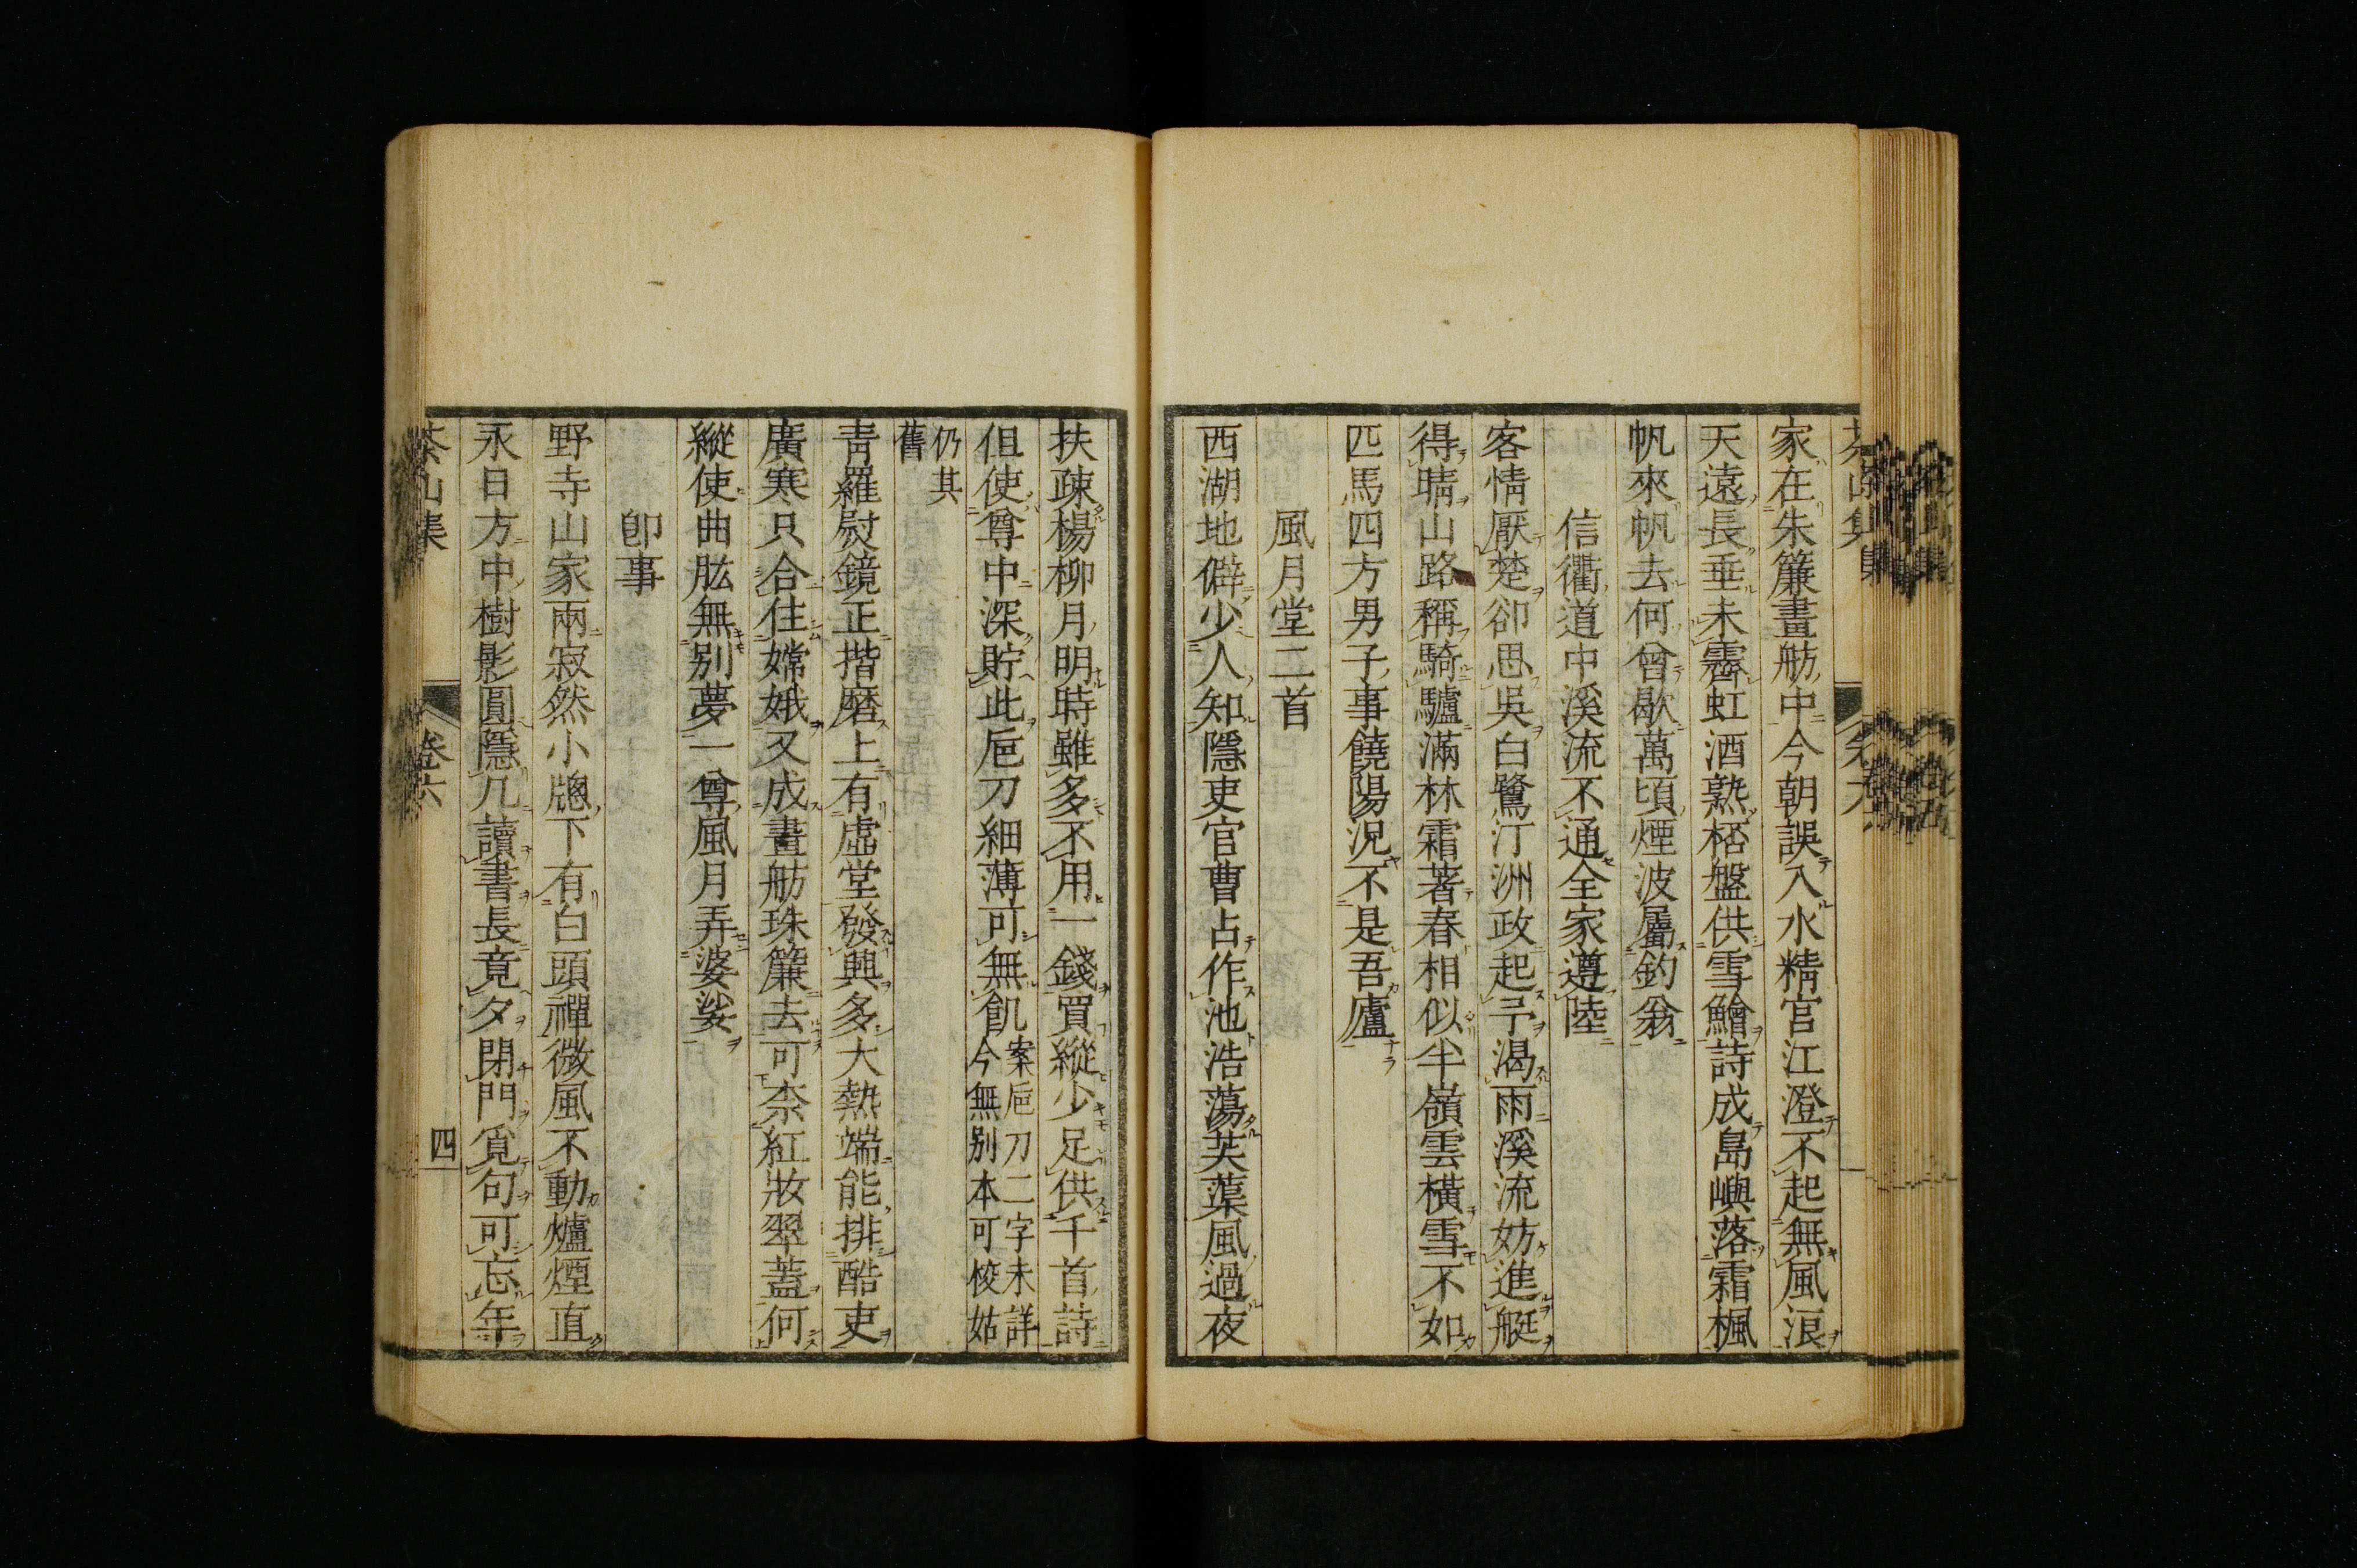 家在朱簾畫舫中今朝誤入水精宮江澄不起無風浪
天遠長垂未霽虹酒熟桮盤供雪鱠詩成島嶼落霜楓
帆來帆去何曾歇萬頃煙波屬釣翁
信衢道中溪流不通全家遵陸
客情厭楚卻思吳白鷺汀洲政起予渴雨溪流妨進艇
得晴山路稱騎驢滿林霜著春相似半嶺雲橫雪不如
匹馬四方男子事饒陽況不是吾廬
風月堂二首
西湖地僻少人知隱吏官曹占作池浩蕩芙蕖風過夜
扶疎楊柳月明時雖多不用一錢買縱少足供千首詩
但使尊中深貯此巵刀細薄可無飢
案巵刀二字未詳
今無別本可校姑
仍其
舊
青羅尉鏡正揩磨上有虛堂發興多大熱端能排酷吏
廣寒只合住嫦娥又成畫舫珠簾去可柰紅妝翠蓋何
縱使曲肱無別夢一尊風月弄婆娑
卽事
野寺山家兩寂然小牕下有白頭禪微風不動爐煙直
永日方中樹影圓隱几讀書長竟夕閉門覓句可忘年
茶山集
卷六
四